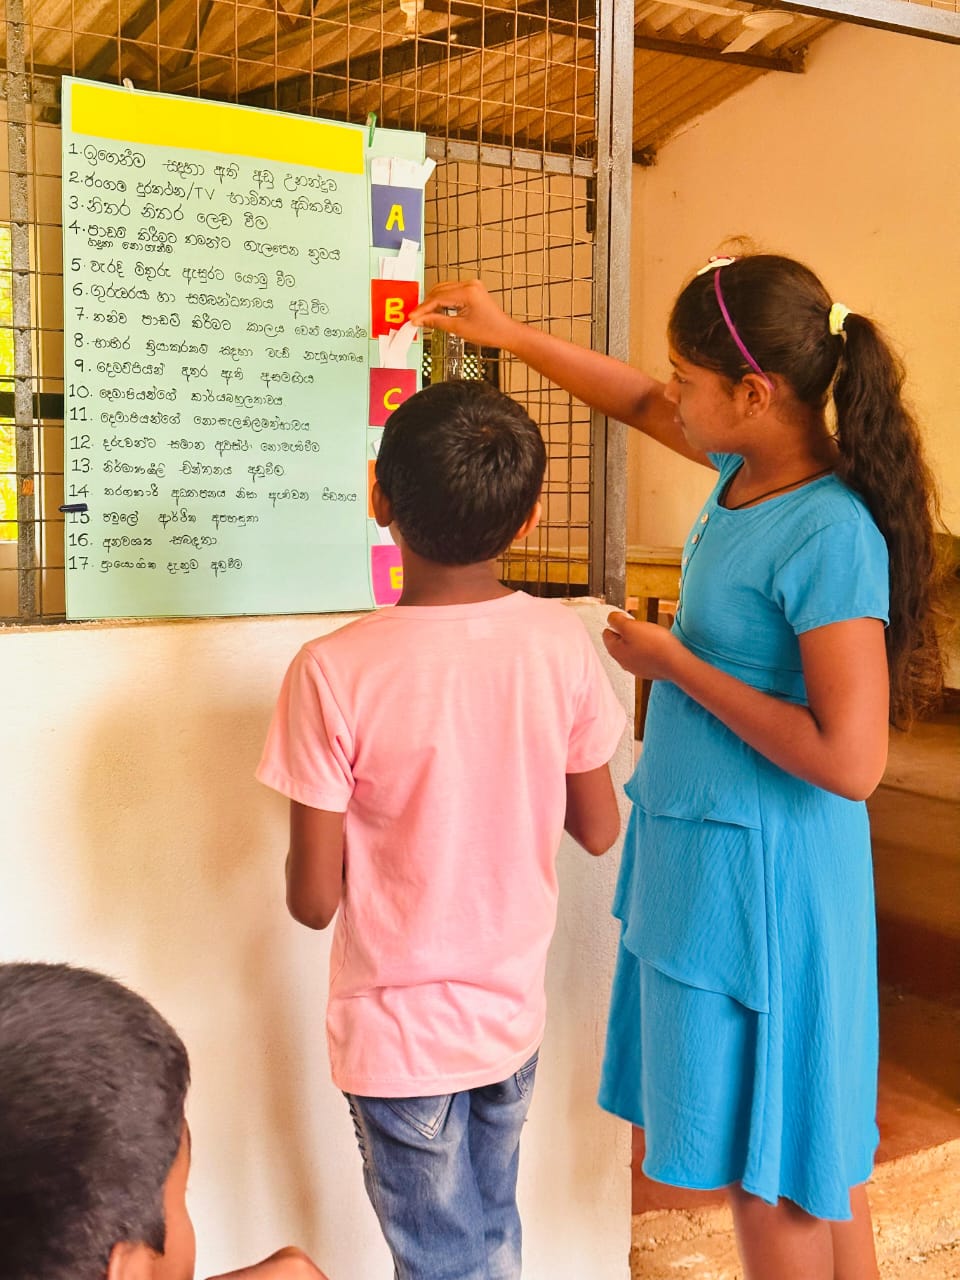 1. ඉගෙනීම සඳහා ඇති අඩු උනන්දුව
2. ජංගම දුරකථන/TV භාවිතය අධිකවීම
3. නිතර නිතර ලෙඩ වීම
4. පාඩම් කිරීමට තමන්ට ගැලපෙන ක්‍රමය
හඳුනා නොගැනීම
5. වැරදි මිතුරු ඇසුරට යොමු වීම
6. ගුරුවරයා හා සම්බන්ධතාවය අඩුවීම
7. තනිව පාඩම් කිරීමට කාලය වෙන් නොකිරීම
8. බාහිර ක්‍රියාකාරකම් සඳහා වැඩි නැඹුරුතාවය
9. දෙමව්පියන් අතර ඇති අසමගිය
10. දෙමාපියන්ගේ කාර්යබහුලතාවය
11. දෙමාපියන්ගේ නොසැලකිලිමත්භාවය
12. දරුවන්ට සමාන අවස්ථා නොමැතිවීම
13. නිර්මාණශීලී චින්තනය අඩුවීම
14. තරගකාරී අධ්‍යාපනය නිසා ඇතිවන පීඩනය
15. පවුලේ ආර්ථික අපහසුතා
16. අනවශ්‍ය සබඳතා
17. ප්‍රායෝගික දැනුම අඩුවීම
A
B
C
E